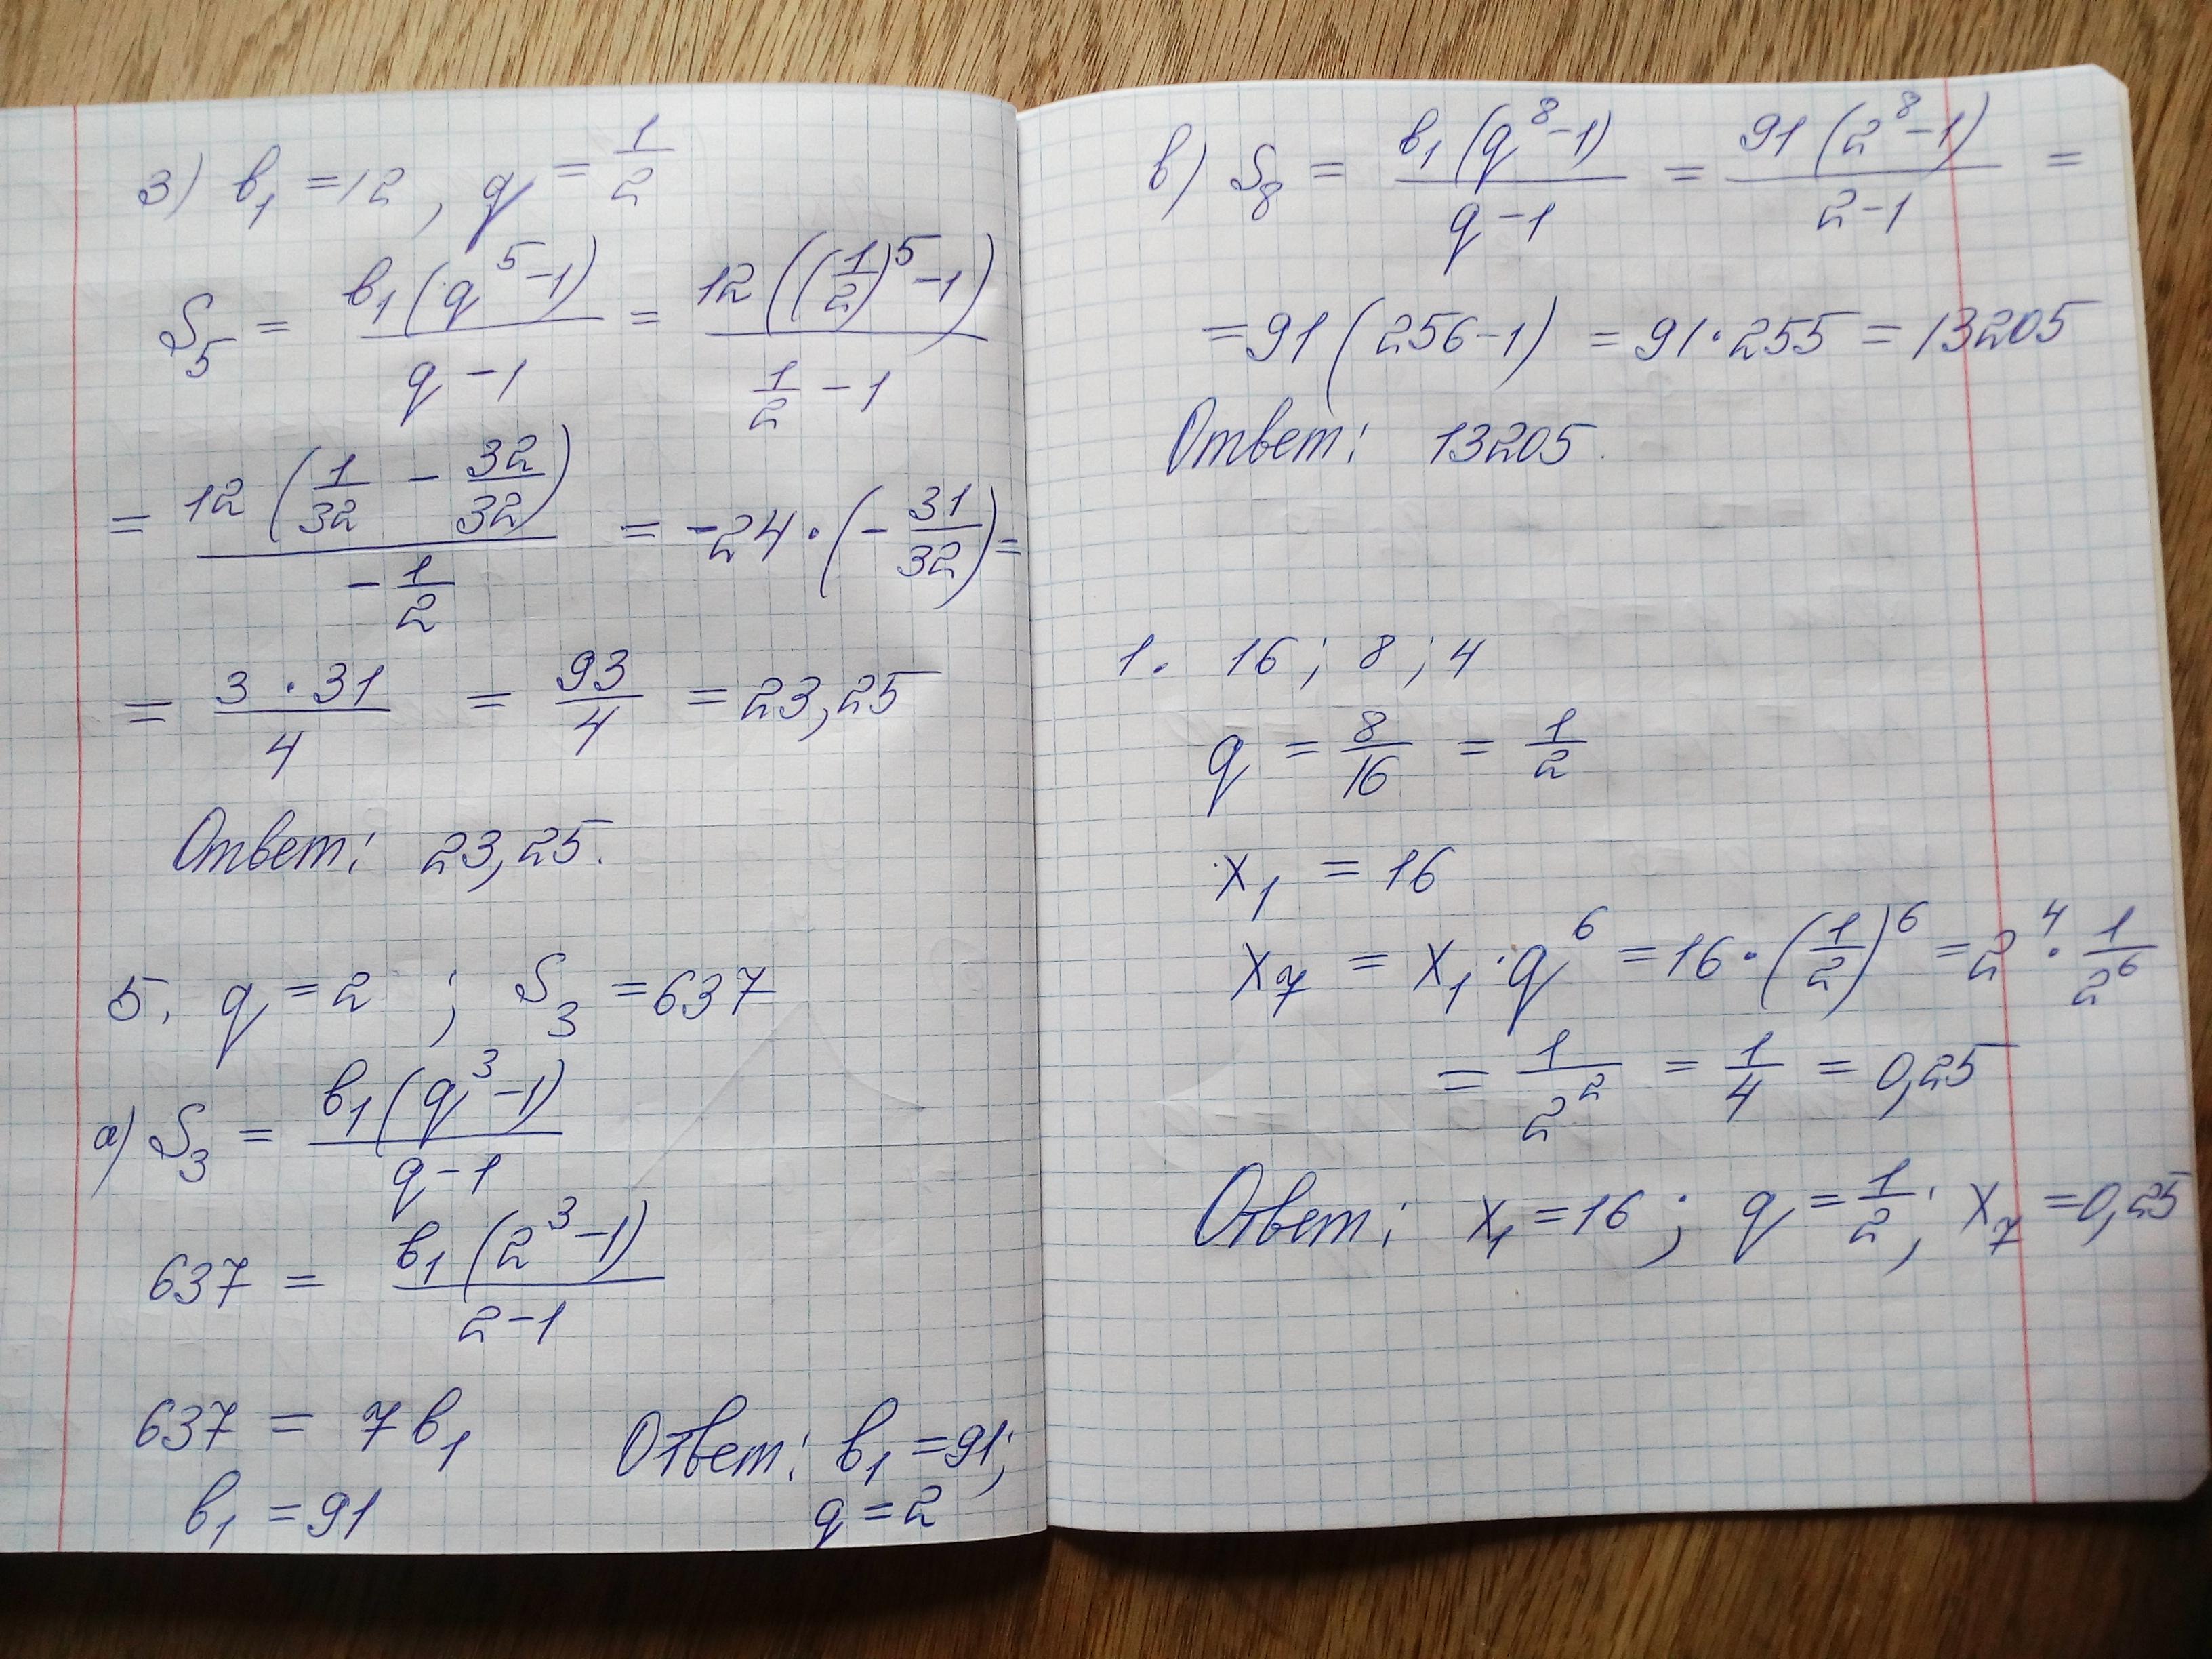 3) b₁ = 12, q = 1/2
S₅ = b₁(q⁵-1)/(q-1) = 12((1/2)⁵-1)/(1/2-1)
= 12(1/32 - 32/32)/(-1/2) = -24·(-31/32) =
= 3·31/4 = 93/4 = 23,25
Ответ: 23,25.
5. q = 2 ; S₃ = 637
а) S₃ = b₁(q³-1)/(q-1)
637 = b₁(2³-1)/(2-1)
637 = 7b₁
b₁ = 91
Ответ: b₁ = 91;
q = 2
в) S₈ = b₁(q⁸-1)/(q-1) = 91(2⁸-1)/(2-1) =
= 91(256-1) = 91·255 = 13205
Ответ: 13205.
1. 16; 8; 4
q = 8/16 = 1/2
x₁ = 16
x₇ = x₁·q⁶ = 16·(1/2)⁶ = 2⁴·1/2⁶
= 1/2² = 1/4 = 0,25
Ответ: x₁ = 16; q = 1/2; x₇ = 0,25